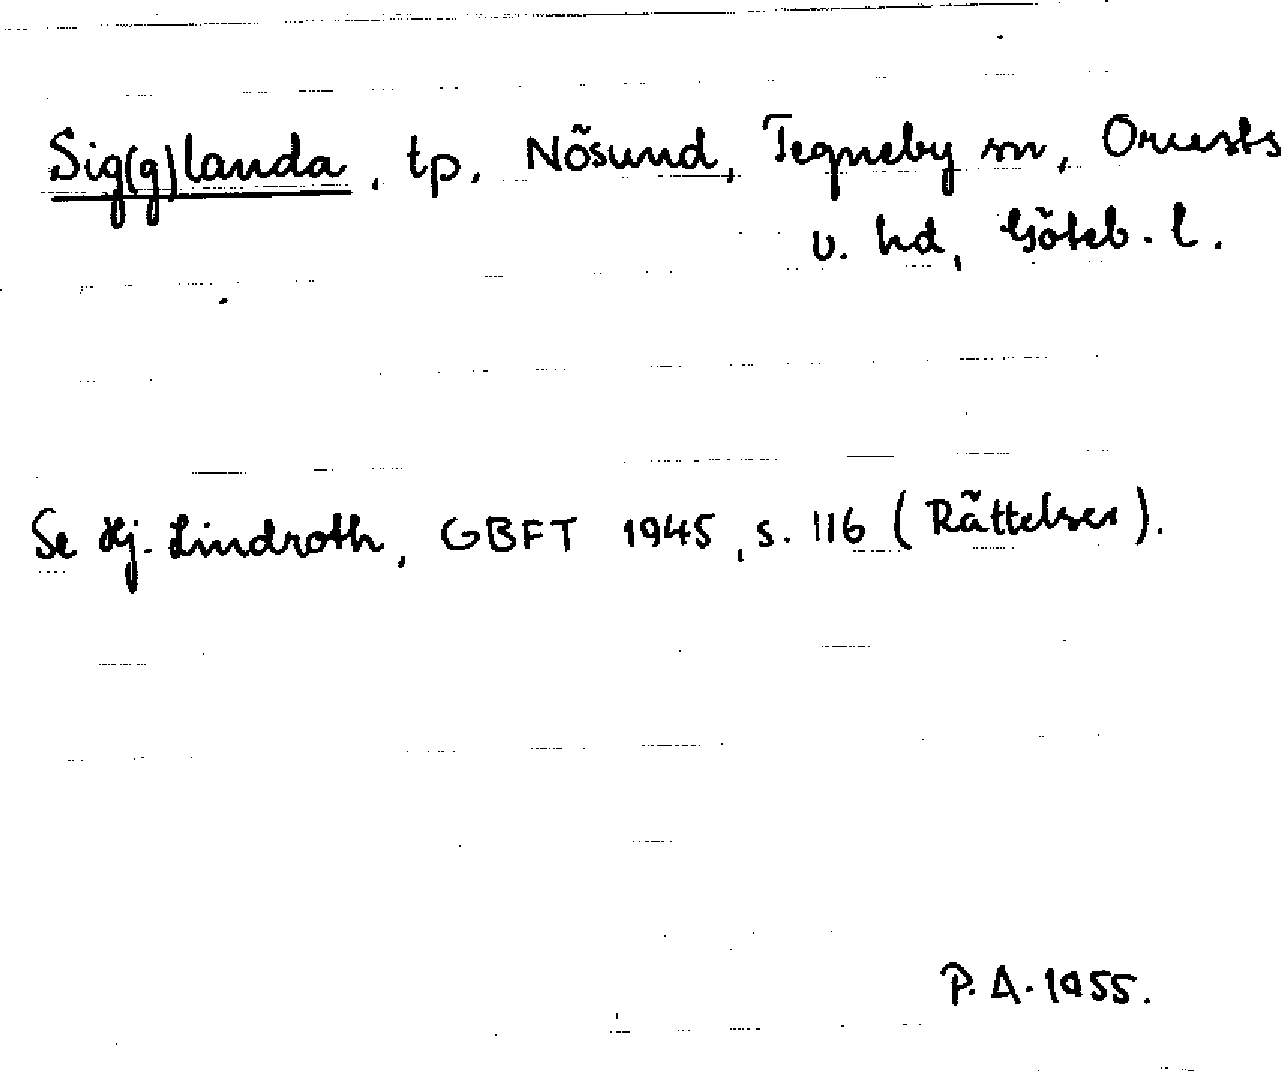 Sig(g)landa, tp, Nösund, Tegneby sn, Orusts
v. hd, Göteb. l.
Se Hj. Lindroth, GBFT 1945, s. 116 (Rättelser).
P. A. 1955.